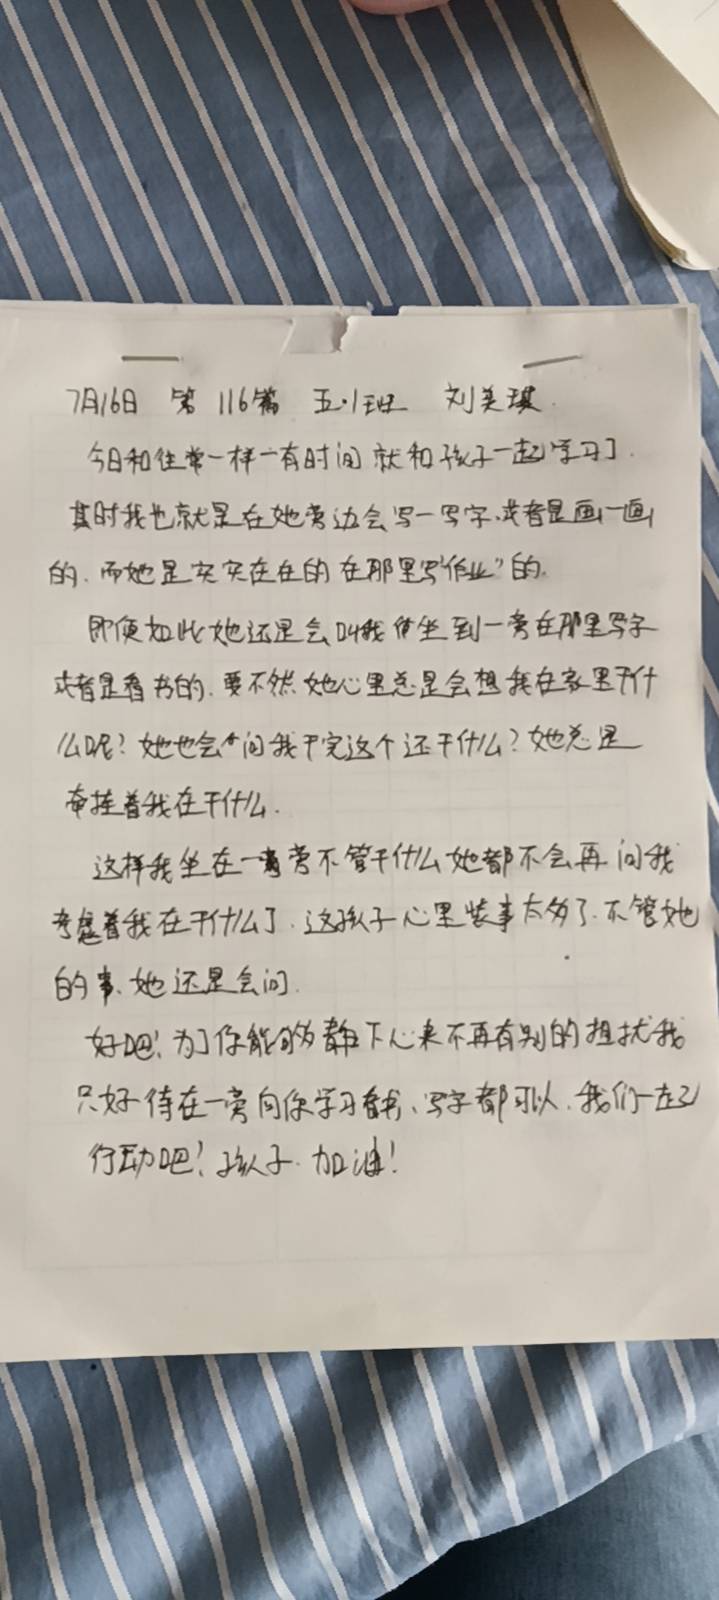 7月16日 第116篇 五.1班 刘美琪.
今日和往常一样一有时间就和孩子一起学习了.
其时我也就是在她旁边会写一写字、或者是画一画
的、而她是实实在在的在那里写“作业”的.
即便如此她还是会叫我坐到一旁在那里写字
或者是看书的、要不然她心里总是会想我在家里干什
么呢?她也会问我干完这个还干什么?她总是
牵挂着我在干什么.
这样我坐在一旁不管干什么她都不会再问我
考虑着我在干什么了.这孩子心里装事太多了.不管她
的事、她还是会问.
好吧!为了你能够静下心来不再有别的担扰我
只好待在一旁向你学习看书、写字都可以、我们一起
行动吧!孩子.加油!